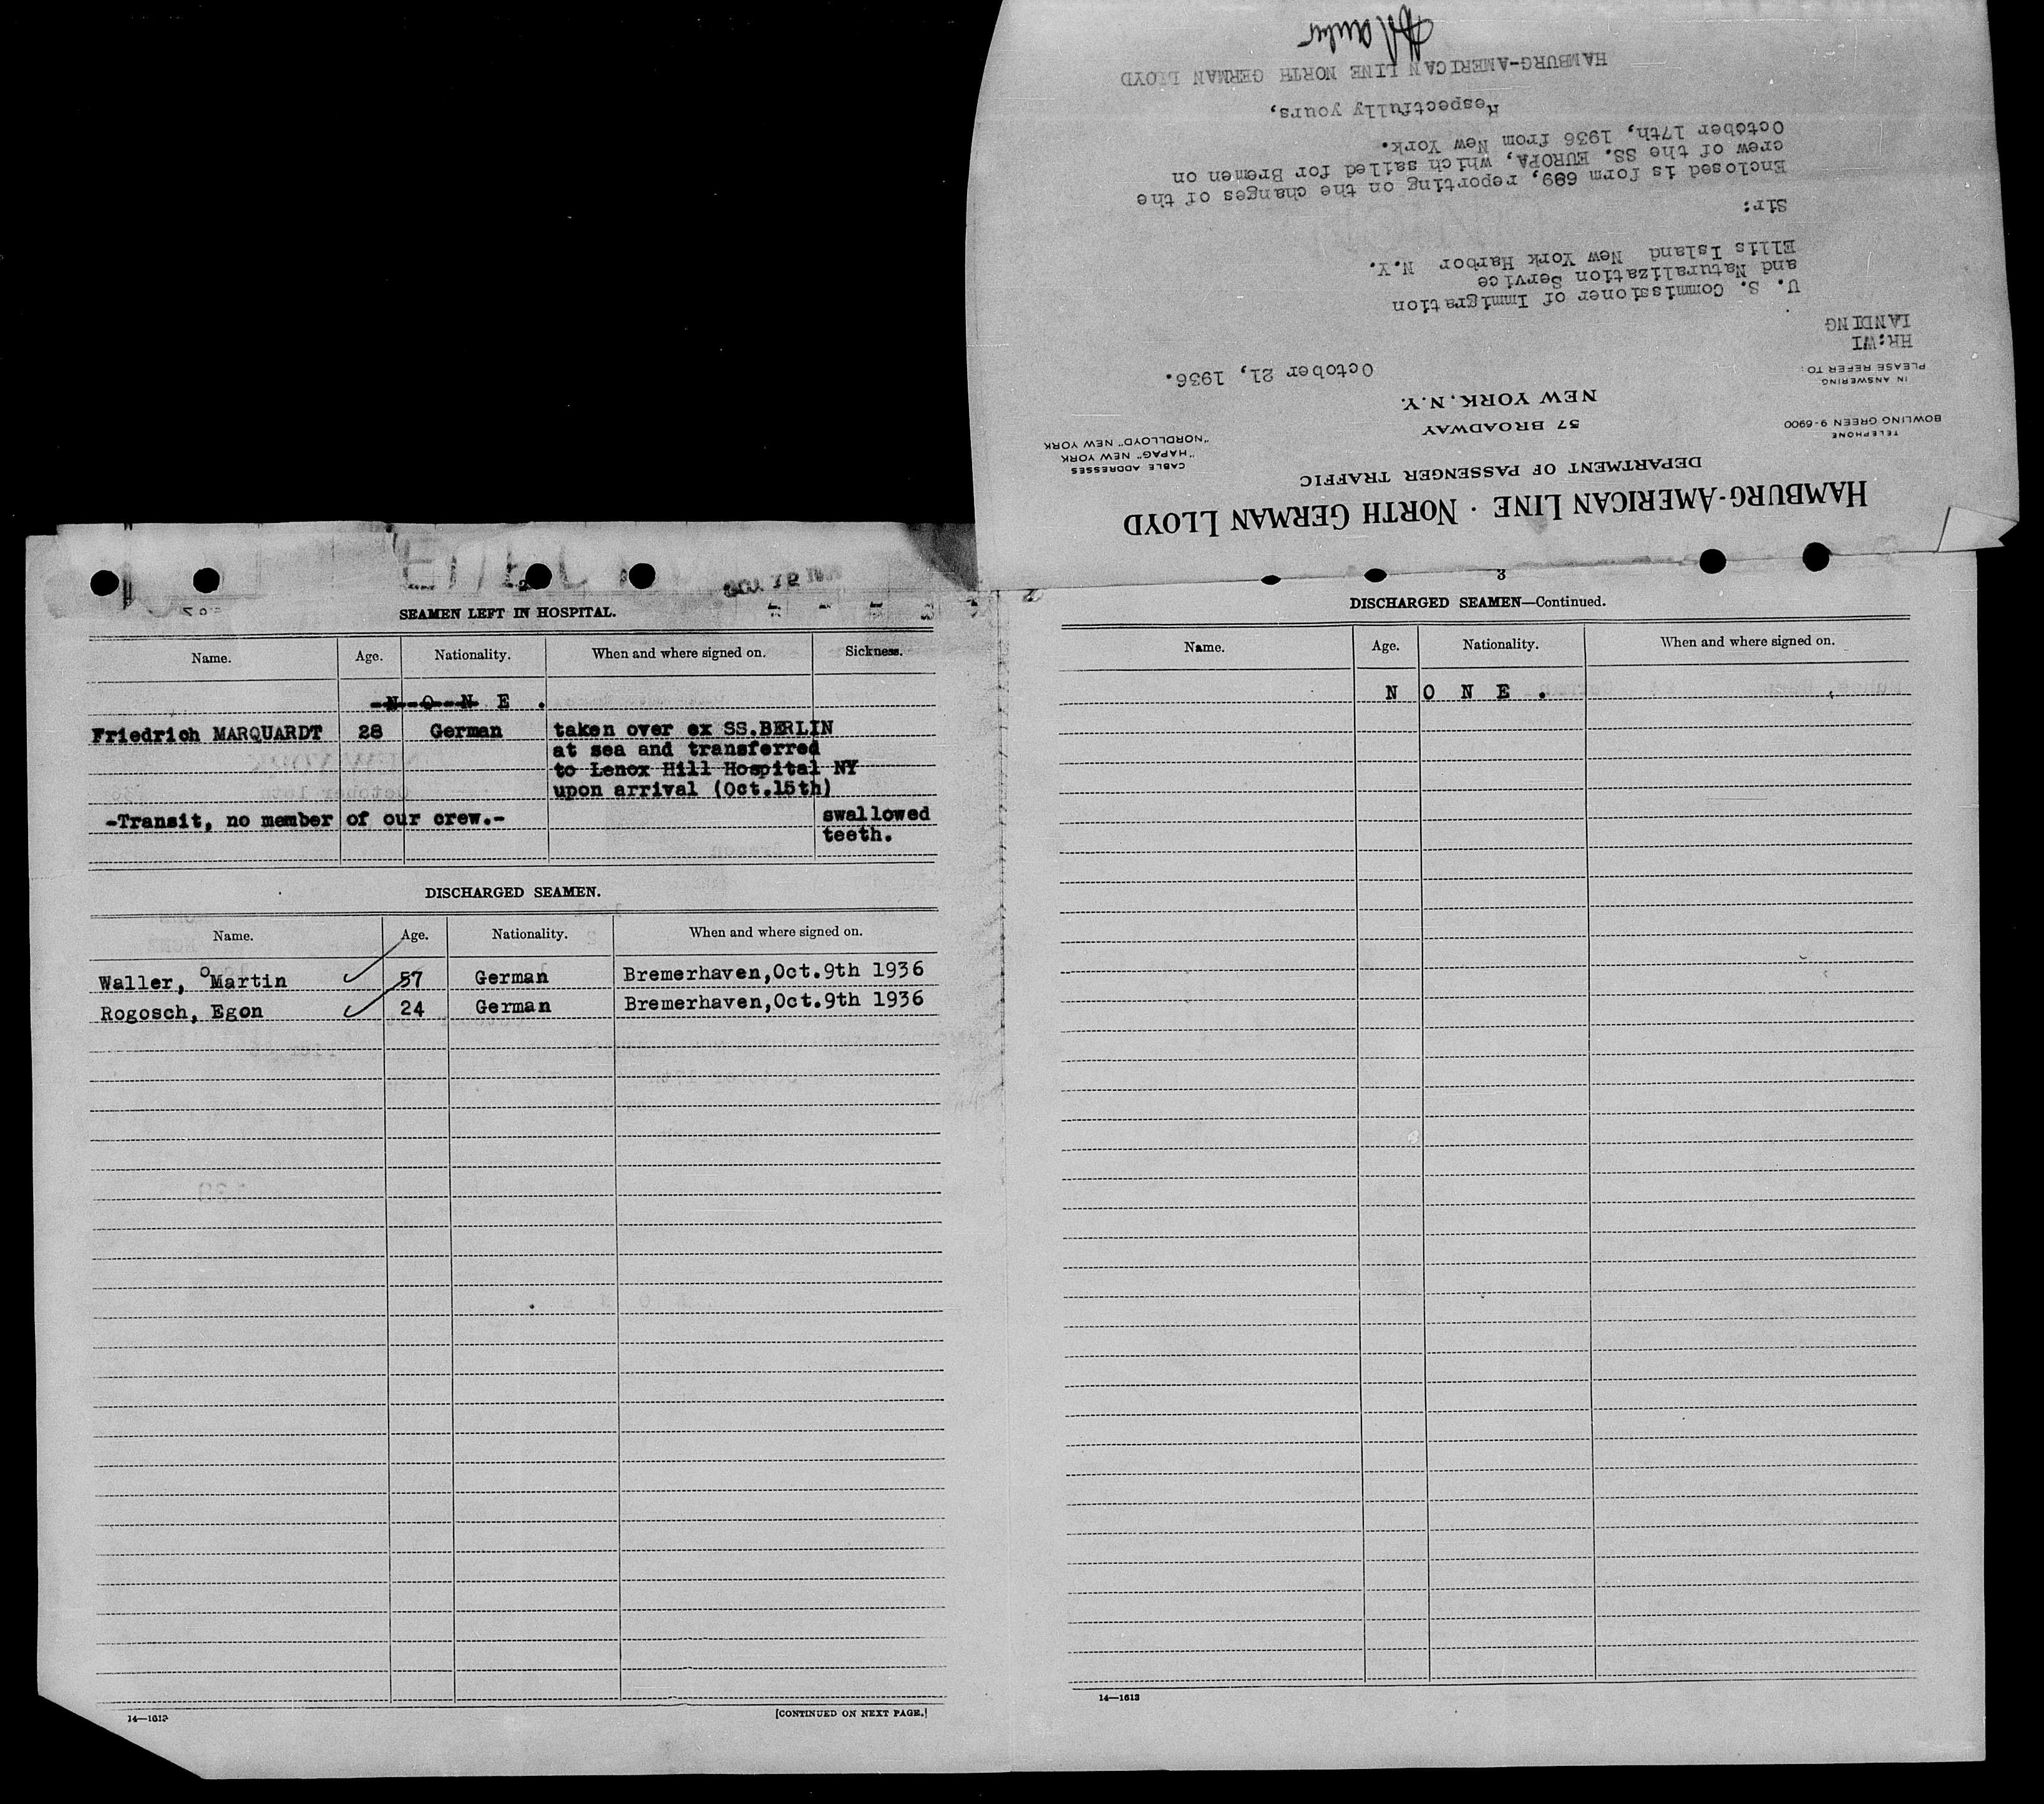 HAMBURG-AMERICAN LINE · NORTH GERMAN LLOYD
DEPARTMENT OF PASSENGER TRAFFIC
57 BROADWAY
NEW YORK, N.Y.
TELEPHONE
BOWLING GREEN 9-6900
CABLE ADDRESSES
"HAPAG" NEW YORK
"NORDLLOYD" NEW YORK
IN ANSWERING
PLEASE REFER TO:
HR:WI
LANDING
October 21, 1936.
U. S. Commissioner of Immigration
and Naturalization Service
Ellis Island New York Harbor N.Y.
Sir:
Enclosed is form 689, reporting on the changes of the
crew of the SS. EUROPA, which sailed for Bremen on
October 17th, 1936 from New York.
Respectfully yours,
HAMBURG-AMERICAN LINE NORTH GERMAN LLOYD
2
SEAMEN LEFT IN HOSPITAL.
Name. Age. Nationality. When and where signed on. Sickness.
N O N E .
Friedrich MARQUARDT 28 German taken over ex SS.BERLIN
at sea and transferred
to Lenox Hill Hospital NY
upon arrival (Oct.15th)
-Transit, no member of our crew.- swallowed
teeth.
DISCHARGED SEAMEN.
Name. Age. Nationality. When and where signed on.
Waller, Martin 57 German Bremerhaven,Oct.9th 1936
Rogosch, Egon 24 German Bremerhaven,Oct.9th 1936
14—1613
[CONTINUED ON NEXT PAGE.]
3
DISCHARGED SEAMEN—Continued.
Name. Age. Nationality. When and where signed on.
N O N E .
14—1613